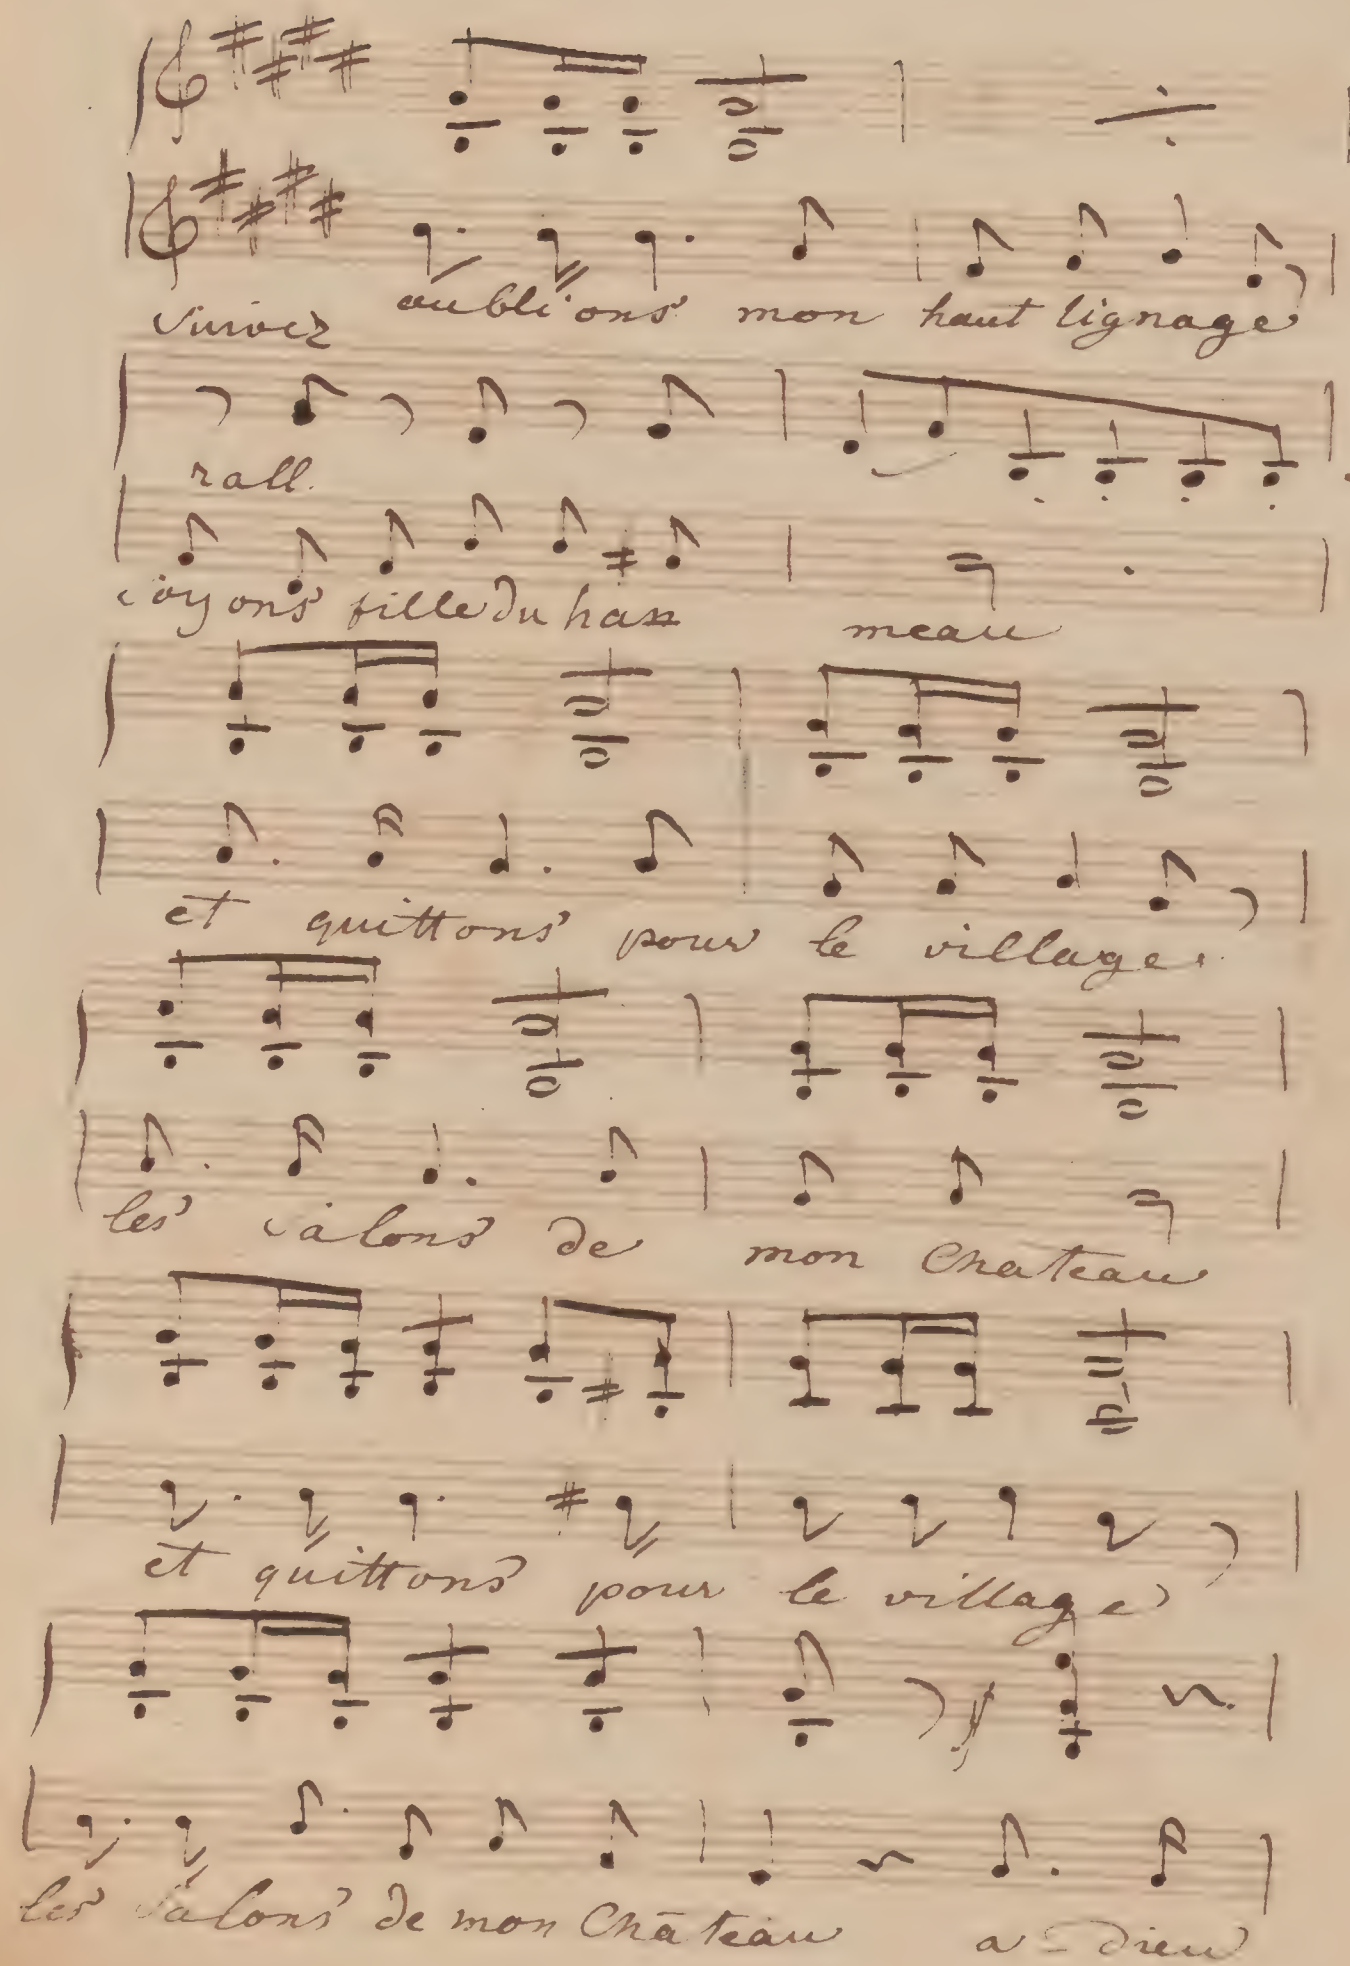 suivez oublions mon haut lignage
rall.
soyons fille du ha=
meau
et quittons pour le village
les salons de mon Chateau
et quittons pour le village
les salons de mon Château a-dieu